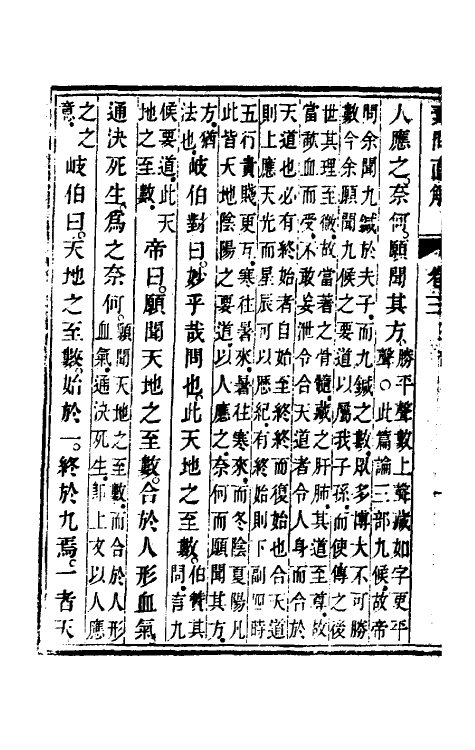 素問直解
卷三
人應之奈何。願聞其方。勝平聲數上聲藏如字更平
聲○此篇論三部九候故帝
問余聞九鍼於夫子而九鍼之數既多博大不可勝
數今余願聞九候之要道以屬我子孫而使傳之後
世其理至微故當著之骨髓藏之肝肺其道至尊故
當歃血而受不敢妄泄令合天道者令人身而合於
天道也必有終始者自始至終終而復始也合天道
則上應天光而星辰可以歷紀有終始則下副四時
五行貴賤更互寒往暑來暑往寒來而冬陰夏陽凡
此皆天地陰陽之要道以人應之奈何而願聞其方
方猶
法也岐伯對曰。妙乎哉問也。此天地之至數。伯贊其
問言九
候要道此天
地之至數帝曰。願聞天地之至數。合於人形血氣。
通決死生。爲之奈何。願聞天地之至數而合於人形
血氣通決死生即上文以人應
之之
意岐伯曰。天地之至數。始於一。終於九焉。一者天